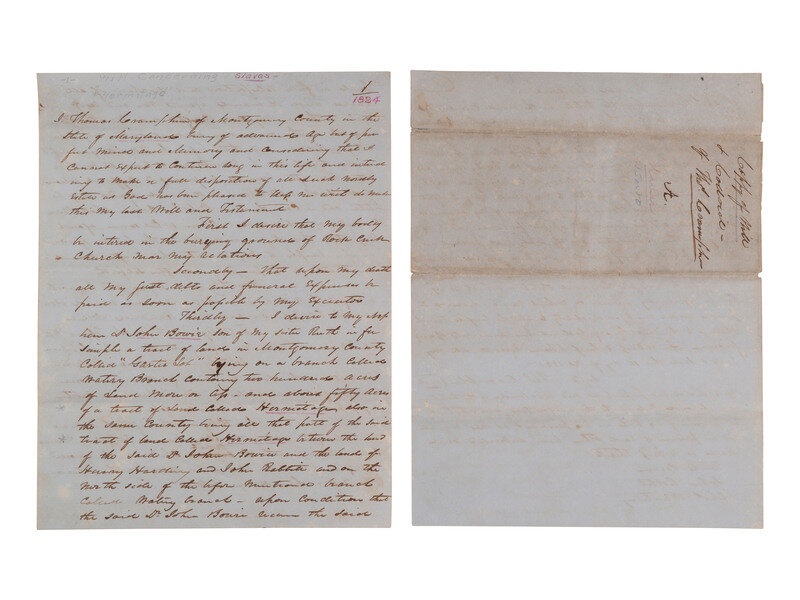 -1- Will Concerning Slaves -
Hermitage
1
1824
I Thomas Cramphin of Montgomery County in the
State of Maryland being of advanced Age but of per
fect Mind and Memory and Considering that I
Cannot Expect to Continue long in this life and intend
ing to make a full disposition of all Such Worldly
Estate as God has been pleased to do make
this My last Will and Testament
First I desire that My body
be intered in the burying ground of Rock Creek
Church near My relations
Secondly - that upon My death
all My just debts and funeral Expenses be
paid as soon as possible by My Executors
Thirdly - I devise to My Nep
hew Dr John Bowie son of My sister Ruth in fee
simple a tract of land in Montgomery County
Called lying on a branch Called
Watery Branch containing two hundred acres
of Land More or less - and about fifty Acres
of a tract of Land Called Hermitage also in
the same County being all that part of the said
tract of land Called Hermitage between the land
of the said Dr John Bowie and the land of
Henry Harding and John Rabbitt and on the
North side of the before Mentioned branch
Called Watery branch - upon Conditions that
the said Dr John Bowie the said
Coppy of Will
& Codicil -
of Thos Cramphin
A.